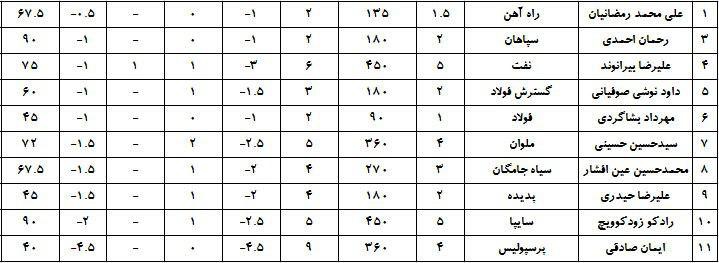 ۱ علی محمد رمضانیان راه آهن ۱.۵ ۱۳۵ ۲ -۱ ۰ - -۰.۵ ۶۷.۵
۳ رحمان احمدی سپاهان ۲ ۱۸۰ ۲ -۱ ۰ - -۱ ۹۰
۴ علیرضا بیرانوند نفت ۵ ۴۵۰ ۶ -۳ ۱ ۱ -۱ ۷۵
۵ داود نوشی صوفیانی گسترش فولاد ۲ ۱۸۰ ۳ -۱.۵ ۱ - -۱ ۶۰
۶ مهرداد بشاگردی فولاد ۱ ۹۰ ۲ -۱ ۰ - -۱ ۴۵
۷ سیدحسین حسینی ملوان ۴ ۳۶۰ ۵ -۲.۵ ۲ - -۱.۵ ۷۲
۸ محمدحسین عین افشار سیاه جامگان ۳ ۲۷۰ ۴ -۲ ۱ - -۱.۵ ۶۷.۵
۹ علیرضا حیدری پدیده ۲ ۱۸۰ ۴ -۲ ۱ - -۱.۵ ۴۵
۱۰ رادکو زودکوویچ سایپا ۵ ۴۵۰ ۵ -۲.۵ ۱ - -۲ ۹۰
۱۱ ایمان صادقی پرسپولیس ۴ ۳۶۰ ۹ -۴.۵ ۰ - -۴.۵ ۴۰